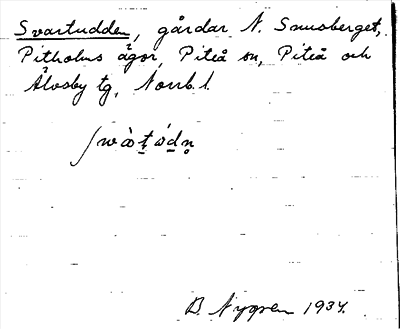 Svartudden, gårdar N. Snusberget,
Pitholms ägor, Piteå sn, Piteå och
Älvsby tg, Norrb. l.
B. Nygren 1934.